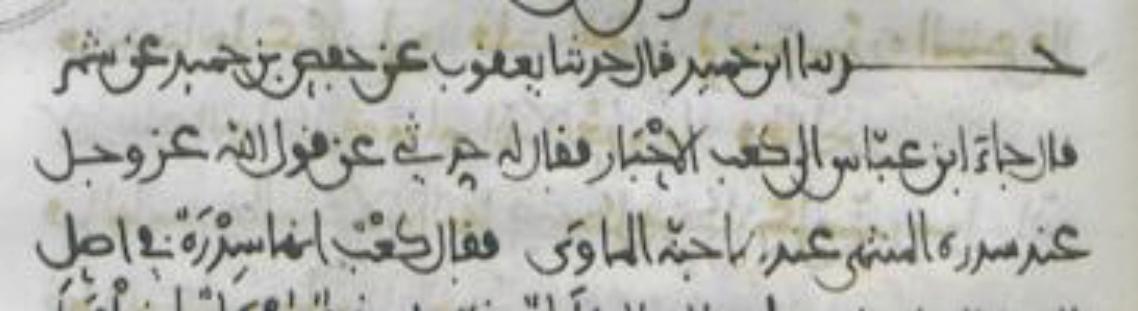 حدثنا ابن حميد قال حدثنا يعقوب عن جعفر بن حميد عن شمر
قال جاءَ ابن عبّاس الى كعب الاحْبَار فقال له حدثني عن قول الله عز وجل
عند سدرة المنتهى عندها جنّة الماوَى فقال كعْبٌ انها سِدْرَةٌ في اصل